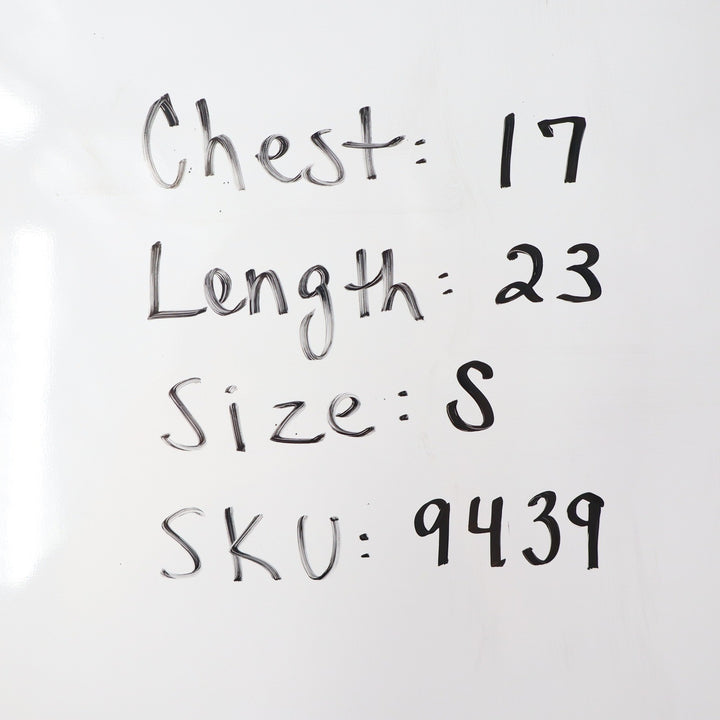 Chest: 17
Length: 23
Size: S
SKU: 9439